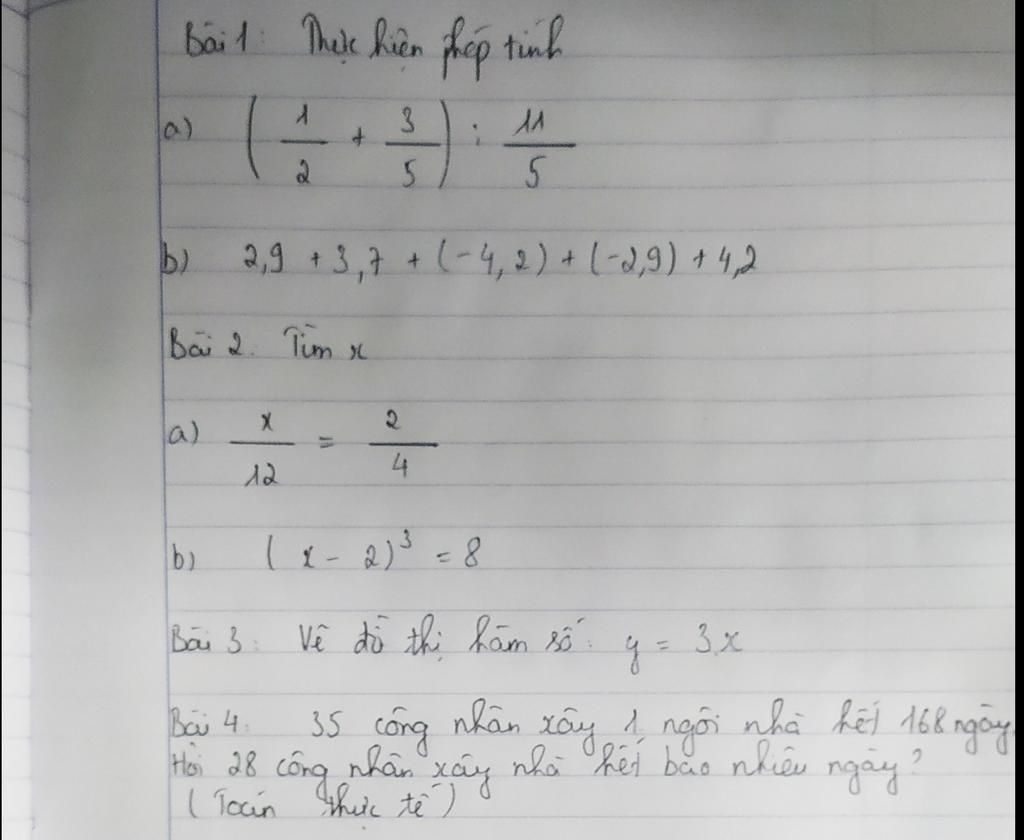 Bài 1: Thực hiện phép tính
a) (1/2 + 3/5) : 11/5
b) 2,9 + 3,7 + (-4,2) + (-2,9) + 4,2
Bài 2. Tìm x
a) x/12 = 2/4
b) (x - 2)³ = 8
Bài 3: Vẽ đồ thị hàm số: y = 3.x
Bài 4: 35 công nhân xây 1 ngôi nhà hết 168 ngày.
Hỏi 28 công nhân xây nhà hết bao nhiêu ngày?
(Toán thực tế)